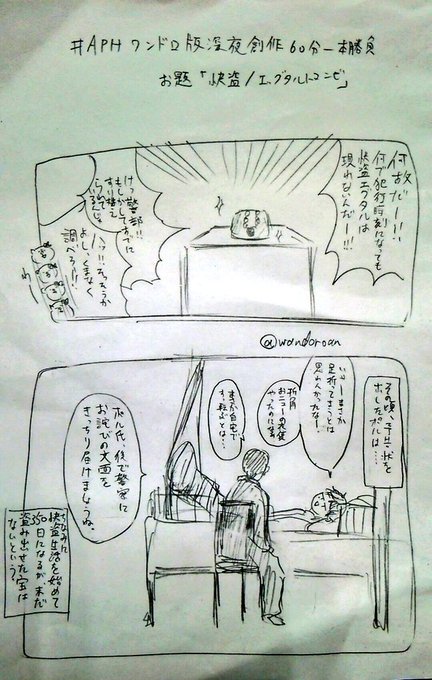 #APHワンドロ版深夜創作60分一本勝負
お題「快盗/エッグタルトコンビ」
何故だー!!!
何で犯行時刻になっても
快盗エッグタルは
現れないんだー!!!
けっ警部!!!
もしかしてすでに
すり替え
られているんじゃ
ハッ!!
よしくまなく
調べろ!!
@wondoroan
その頃、予告状を
出したポルは…
いやーまさか
足折ってまうとは
思わんかったなー。
折角
おニューの衣装
やったのになぁ
まさか自宅で
すっ転ぶとは…
ポル氏、後で警察に
お詫びの文面を
きっちり届けましょうね。
ちなみに
快盗生活を始めて
350日になるが、未だ
盗み出せた宝は
ないという。